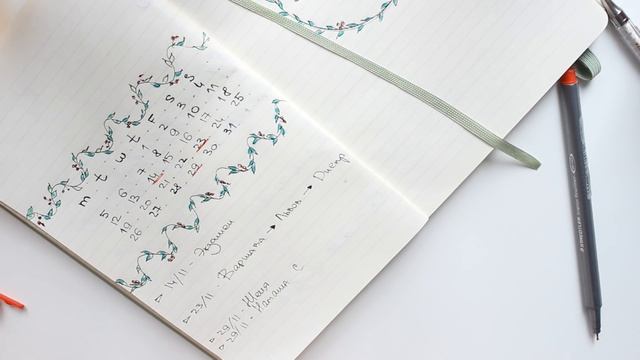 m t w t F S S
1 2 3 4
5 6 7 8 9 10 11
12 13 14 15 16 17 18
19 20 21 22 23 24 25
26 27 28 29 30 31
▷ 14/11 - Экзамен
▷ 23/11 - Варшава → Львов → Днепр
▷ 29/11 - Женя
▷ 29/11 - Наташа С
STAEDTLER